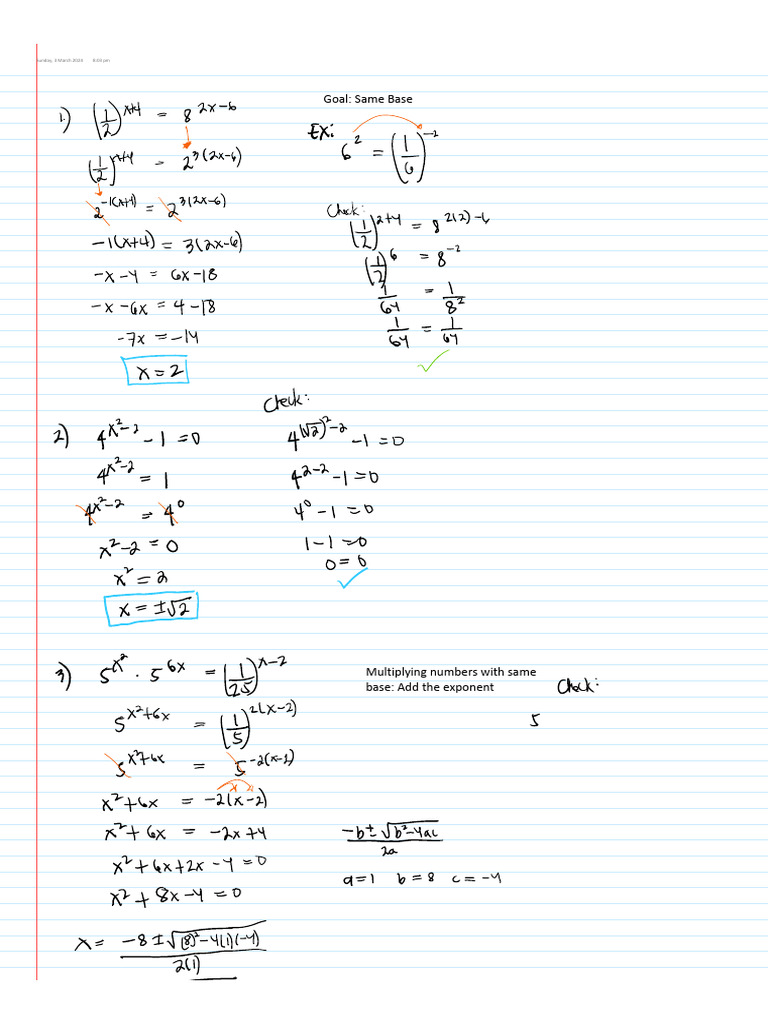 Sunday, 3 March 2024 8:03 pm
Goal: Same Base
1.) (1/2)^(x+4) = 8^(2x-6)
(1/2)^(x+4) = 2^(3(2x-6))
2^(-1(x+4)) = 2^(3(2x-6))
-1(x+4) = 3(2x-6)
-x-4 = 6x-18
-x-6x = 4-18
-7x = -14
x = 2
Ex:
6^2 = (1/6)^(-2)
Check:
(1/2)^(2+4) = 8^(2(2)-6)
(1/2)^6 = 8^(-2)
1/64 = 1/8^2
1/64 = 1/64
2) 4^(x^2-2) - 1 = 0
4^(x^2-2) = 1
4^(x^2-2) = 4^0
x^2-2 = 0
x^2 = 2
x = ±√2
Check:
4^((√2)^2-2) - 1 = 0
4^(2-2) - 1 = 0
4^0 - 1 = 0
1-1 = 0
0 = 0
3) 5^(x^2) · 5^(6x) = (1/25)^(x-2)
5^(x^2+6x) = (1/5)^(2(x-2))
5^(x^2+6x) = 5^(-2(x-2))
x^2+6x = -2(x-2)
x^2+6x = -2x+4
x^2+6x+2x-4 = 0
x^2+8x-4 = 0
x = (-8±√((8)^2-4(1)(-4)))/2(1)
Multiplying numbers with same
base: Add the exponent
Check:
5
(-b±√(b^2-4ac))/2a
a=1 b=8 c=-4